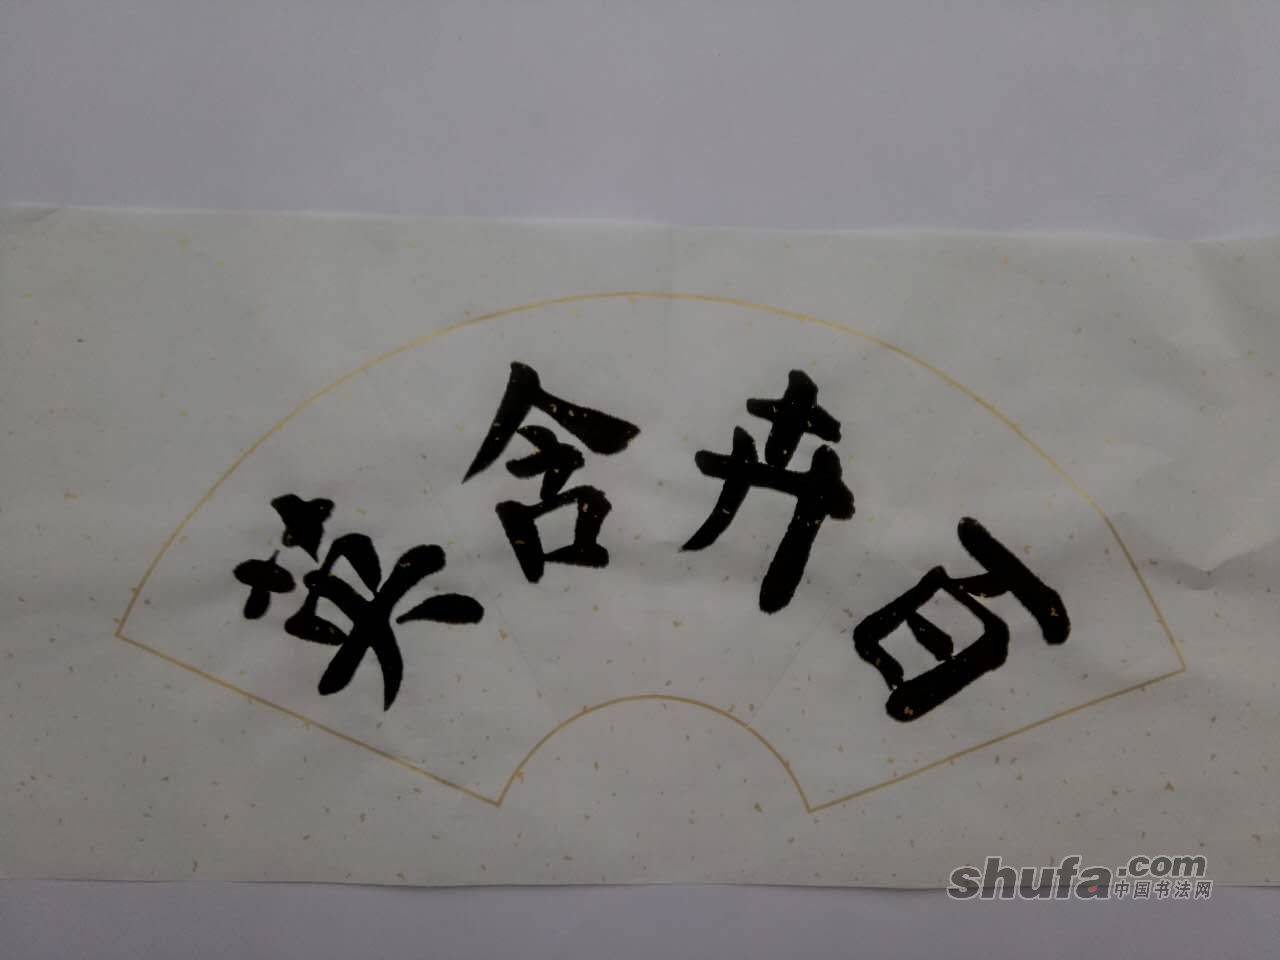 百卉含英
shufa.com
中国书法网